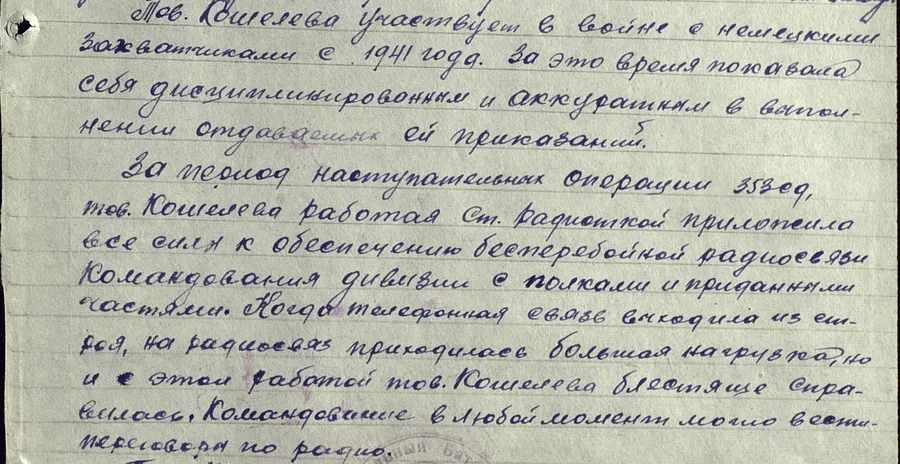 Тов. Кошелева участвует в войне с немецкими
захватчиками с 1941 года. За это время показала
себя дисциплинированным и аккуратным в выпол-
нении отдаваемых ей приказаний.
За период наступательных операции 353 сд,
тов. Кошелева работая ст. радисткой приложила
все силы к обеспечению бесперебойной радиосвязи
Командования дивизии с полками и приданными
частями. Когда телефонная связь выходила из ст-
роя, на радиосвяз приходилась большая нагрузка, но
и с этой работой тов. Кошелева блестяще спра-
вилась. Командование в любой момент могло вести
переговоры по радио.